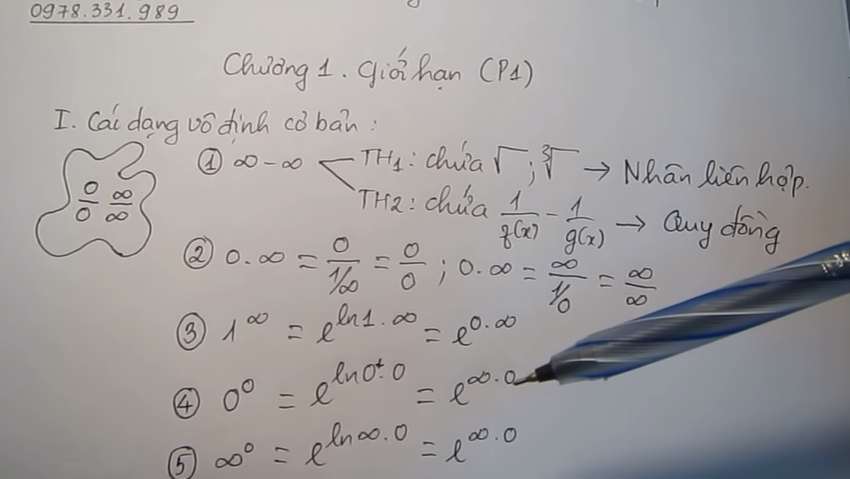 0978.331.989
Chương 1. Giới hạn (P1)
I. Các dạng vô định cơ bản:
0/0 ∞/∞
① ∞-∞ TH1: chứa √ ; ∛ → Nhân liên hợp.
TH2: chứa 1/f(x) - 1/g(x) → Quy đồng
② 0.∞ = 0/(1/∞) = 0/0 ; 0.∞ = ∞/(1/0) = ∞/∞
③ 1^∞ = e^(ln1.∞) = e^(0.∞)
④ 0^0 = e^(ln0⁺.0) = e^(∞.0)
⑤ ∞^0 = e^(ln∞.0) = e^(∞.0)